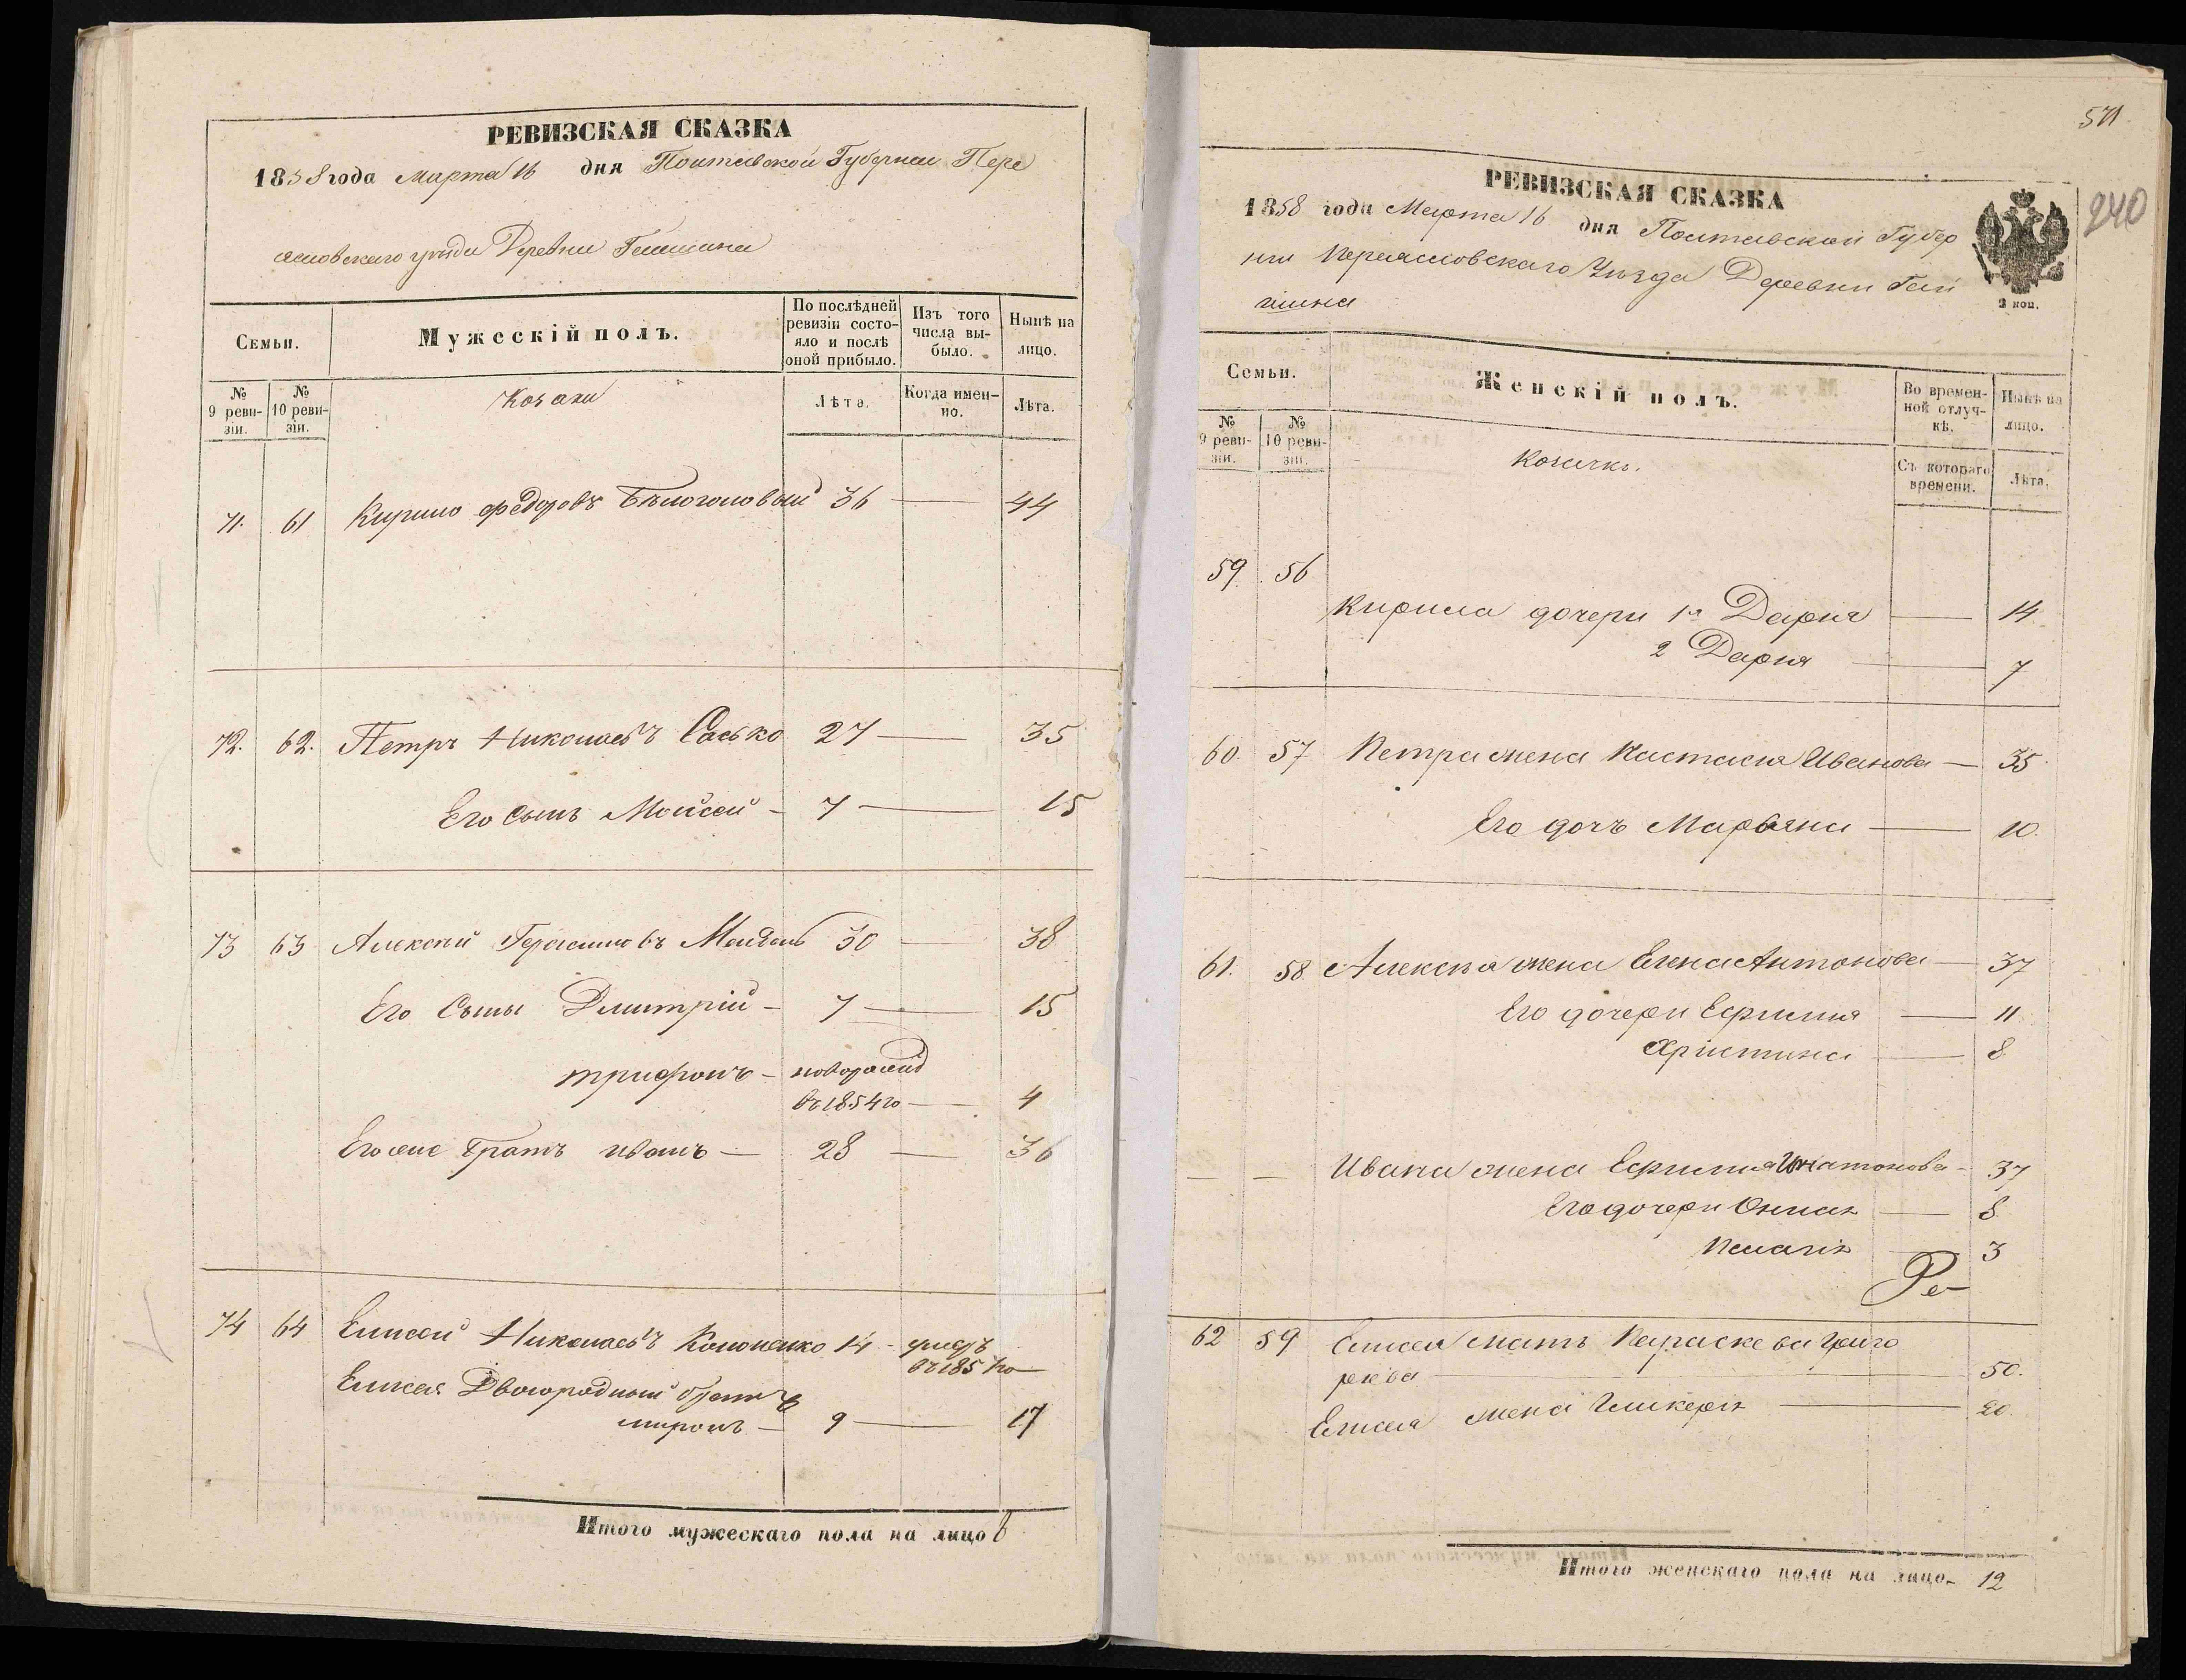 РЕВИЗСКАЯ СКАЗКА
1858 года Марта 16 дня Полтавской Губернии Пере
яславскаго уѣзда Деревни Гайшина
Семьи.
Мужескій полъ.
По послѣдней ревизіи состояло и послѣ оной прибыло.
Изъ того числа выбыло.
Нынѣ на лицо.
№ 9 ревизіи.
№ 10 ревизіи.
Козаки
Лѣта.
Когда именно.
Лѣта.
71. 61 Кирило Федоровъ Бѣлоголовый 36 — 44
72. 62. Петръ Николаевъ Сасько 27 — 35
Его сынъ Мойсей — 7 — 15
73 63 Алексѣй Герасимовъ 30 — 38
Его Сыны Дмитрій — 7 — 15
Трифонъ — новорожд
въ 1854 го — 4
Его же братъ Иванъ — 28 — 36
74 64 Елисей Николаевъ Кононенко 14 —
Елисея Двоюродный братъ
Миронъ — 9 — 17
Итого мужескаго пола на лицо 8
571.
240
РЕВИЗСКАЯ СКАЗКА
1858 года Марта 16 дня Полтавской Губер
ніи Переяславскаго Уѣзда Деревни Гай
шина
2 коп.
Семьи.
Женскій полъ.
Во временной отлучкѣ.
Нынѣ на лицо.
№ 9 ревизіи.
№ 10 ревизіи.
Козачки.
Съ котораго времени.
Лѣта.
59. 56
Кирила дочери 1я Дарія — 14
2 Дарія — 7
60. 57 Петра жена Настасія Иванова — 35
Его дочъ Марьяна — 10.
61. 58. Алексѣя жена Елена Антонова — 37
Его дочери Ефимія — 11
Христина — 8
— — Ивана жена Ефимія — 37
Его дочери — 8
Пелагія 3
62 59 Елисея мать Параскева Григо
рьева — 50.
Елисея жена Гликерія — 20.
Итого женскаго пола на лицо — 12